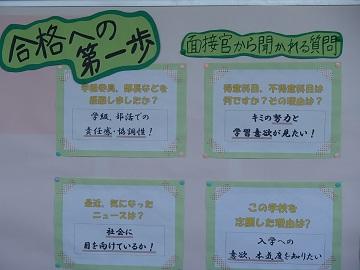 合格への
第一歩
面接官から聞かれる質問
学級委員、部長などを
経験しましたか？
学級、部活での
責任感・協調性！
得意科目、不得意科目は
何ですか？その理由は？
キミの努力と
学習意欲が見たい！
最近、気になった
ニュースは？
社会に
目を向けているか！
この学校を
志願した理由は？
入学への
意欲、本気度を知りたい